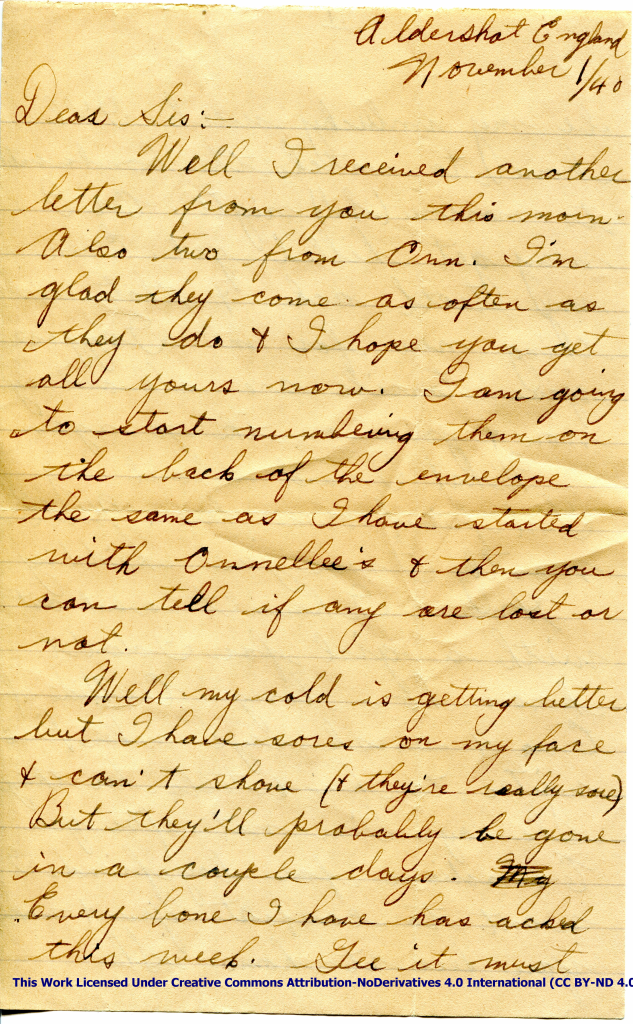 Aldershot England
November 1/40
Dear Sis:-
Well I received another
letter from you this morn-
Also two from Ann. I'm
glad they come as often as
they do & I hope you get
all yours now. I am going
to start numbering them on
the back of the envelope
the same as I have started
with Annellee's & then you
can tell if any are lost or
not.
Well my cold is getting better
but I have sores on my face
& can't shave (& they're really sore)
But they'll probably be gone
in a couple days. My
Every bone I have has acked
this week. Gee it must
This Work Licensed Under Creative Commons Attribution-NoDerivatives 4.0 International (CC BY-ND 4.0